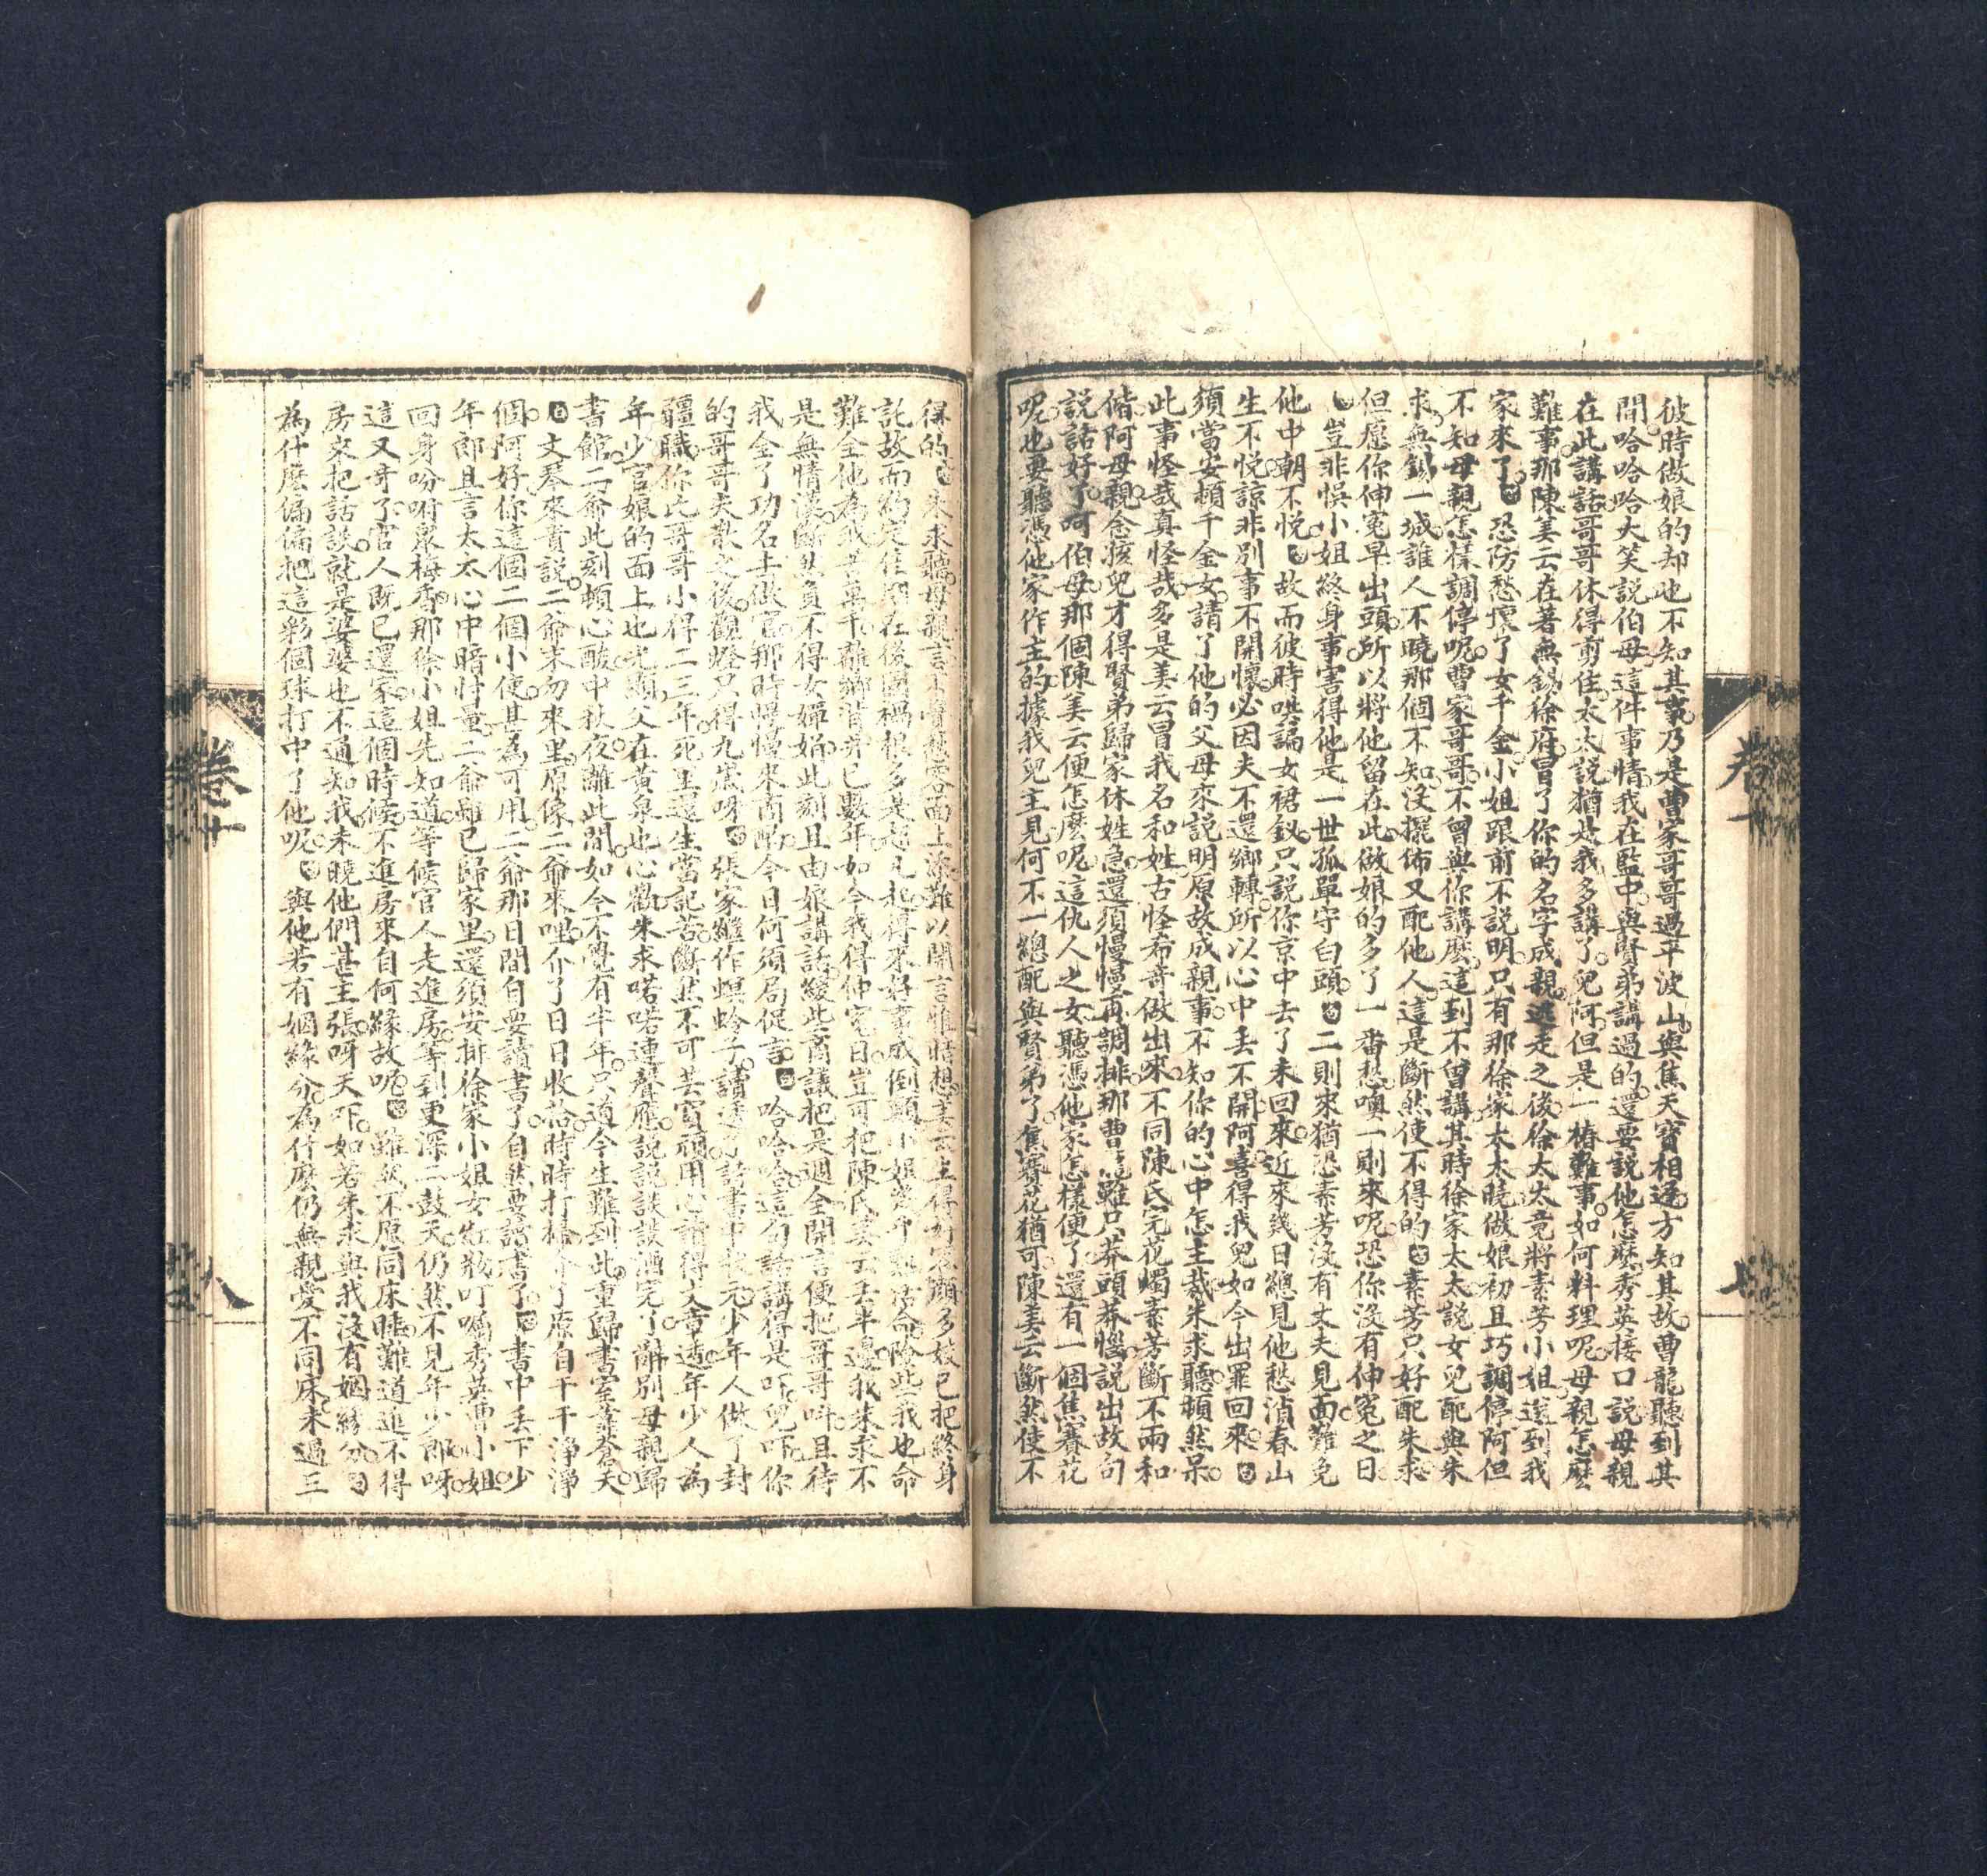 彼時做娘的却也不知其事乃是曹家哥哥過平波山與焦天寶相逢方知其故曹龍聽到其
間哈哈哈大笑説伯母這件事情我在監中與賢弟講過的還要説他怎麽秀英接口説母親
在此講話哥哥休得剪住太太説猶是我多講了兒阿但是一樁難事如何料理呢母親怎麽
難事那陳美云在著無錫徐府冒了你的名字成親逃走之後徐太太竟將素芳小姐送到我
家來了白恐防愁壞了女千金小姐跟前不説明只有那徐家太太曉做娘初且巧調停阿但
不知母親怎樣調停呢曹家哥哥不曾與你講麽這到不曾講其時徐家太太説女兒配與朱
求無錫一城誰人不曉那個不知没擺佈又配他人這是斷然使不得的白素芳只好配朱求
但愿你伸寃早出頭所以將他留在此做娘的多了一番愁噢一則來呢恐你没有伸冤之日
豈非悞小姐終身事害得他是一世孤單守白頭白二則來猶恐素芳没有丈夫見面難免
他中朝不悦白故而彼時哄騙女裙釵只説你京中去了未回來近來幾日總見他愁消春山
生不悦諒非別事不開懷必因夫不還鄉轉所以心中丢不開阿喜得我兒如今出罪回來白
須當安頓千金女請了他的父母來説明原故成親事不知你的心中怎主裁朱求聽頓然呆
此事怪哉真怪哉多是美云冒我名和姓古怪希奇做出來不同陳氏完花燭素芳斷不兩和
偕阿母親念孩兒才得賢弟歸家休姓急還須慢慢再調排那曹龍雖只莽頭莽惱説出故句
説話好了呵伯母那個陳美云便怎麽呢這仇人之女聽憑他家怎樣便了還有一個焦賽花
呢也要聽憑他家作主的據我兒主見何不一總配與賢弟了焦賽花猶可陳美云斷然使不
得的朱求聽母親言面上添難以開言惟暗想美云生得多姣已把終身
託故而約定住在後園禍根多是起凡起得來好事成倒顛小姐活命險些我也命
難全他為我苦萬千離鄉背井已數年如今我得伸寃日豈可把陳氏美云丢半邊我朱求不
是無情漢斷然負不得女嬋娟此刻且由娘講話緩些商議把是週全開言便把哥哥呌且待
我全了功名上做官那時慢慢來商酌今日何須局促言白哈哈哈這句話講得是吓兒吓你
的哥哥夫散之後觀燈只得九歲呀白張家繼作螟蛉子讀透了詩書中狀元少年人做了封
疆職你氏哥哥小得二三年死里逃生當記苦斷然不可芸窗頑用心讀得文章透年少人為
年少官娘的面上也光顯父在黃泉也心歡朱求喏喏連聲應説説談談酒完了辭別母親歸
書館二爺此刻頓心酸中秋夜離此間如今不覺有半年只道今生難到此重歸書室靠蒼天
白文琴來書説二爺未勿來里原像二爺來哩介了日日收拾時時打掃介了原自干干淨淨
個阿好你這個二個小使甚為可用二爺那日間自要讀書了自然要讀書了白書中丢下少
年郎且言太太心中暗忖量二爺雖已歸家里還須安排徐家小姐女紅粧叮囑秀英曹小姐
回身吩咐衆梅香那徐小姐先如道等候官人走進房等到更深二鼓天仍然不見年少郎呀
這又奇了官人旣已還家這個時候不進房來自何緣故呢白雖然不愿同床睡難道進不得
房來把話談就是婆婆也不通知我未曉他們甚主張呀天吓如若朱求與我没有姻緣分白
為什麽偏偏把這彩個球打中了他呢白與他若有姻緣分為什麽仍無親愛不同床未過三
卷十
七
卷十
八